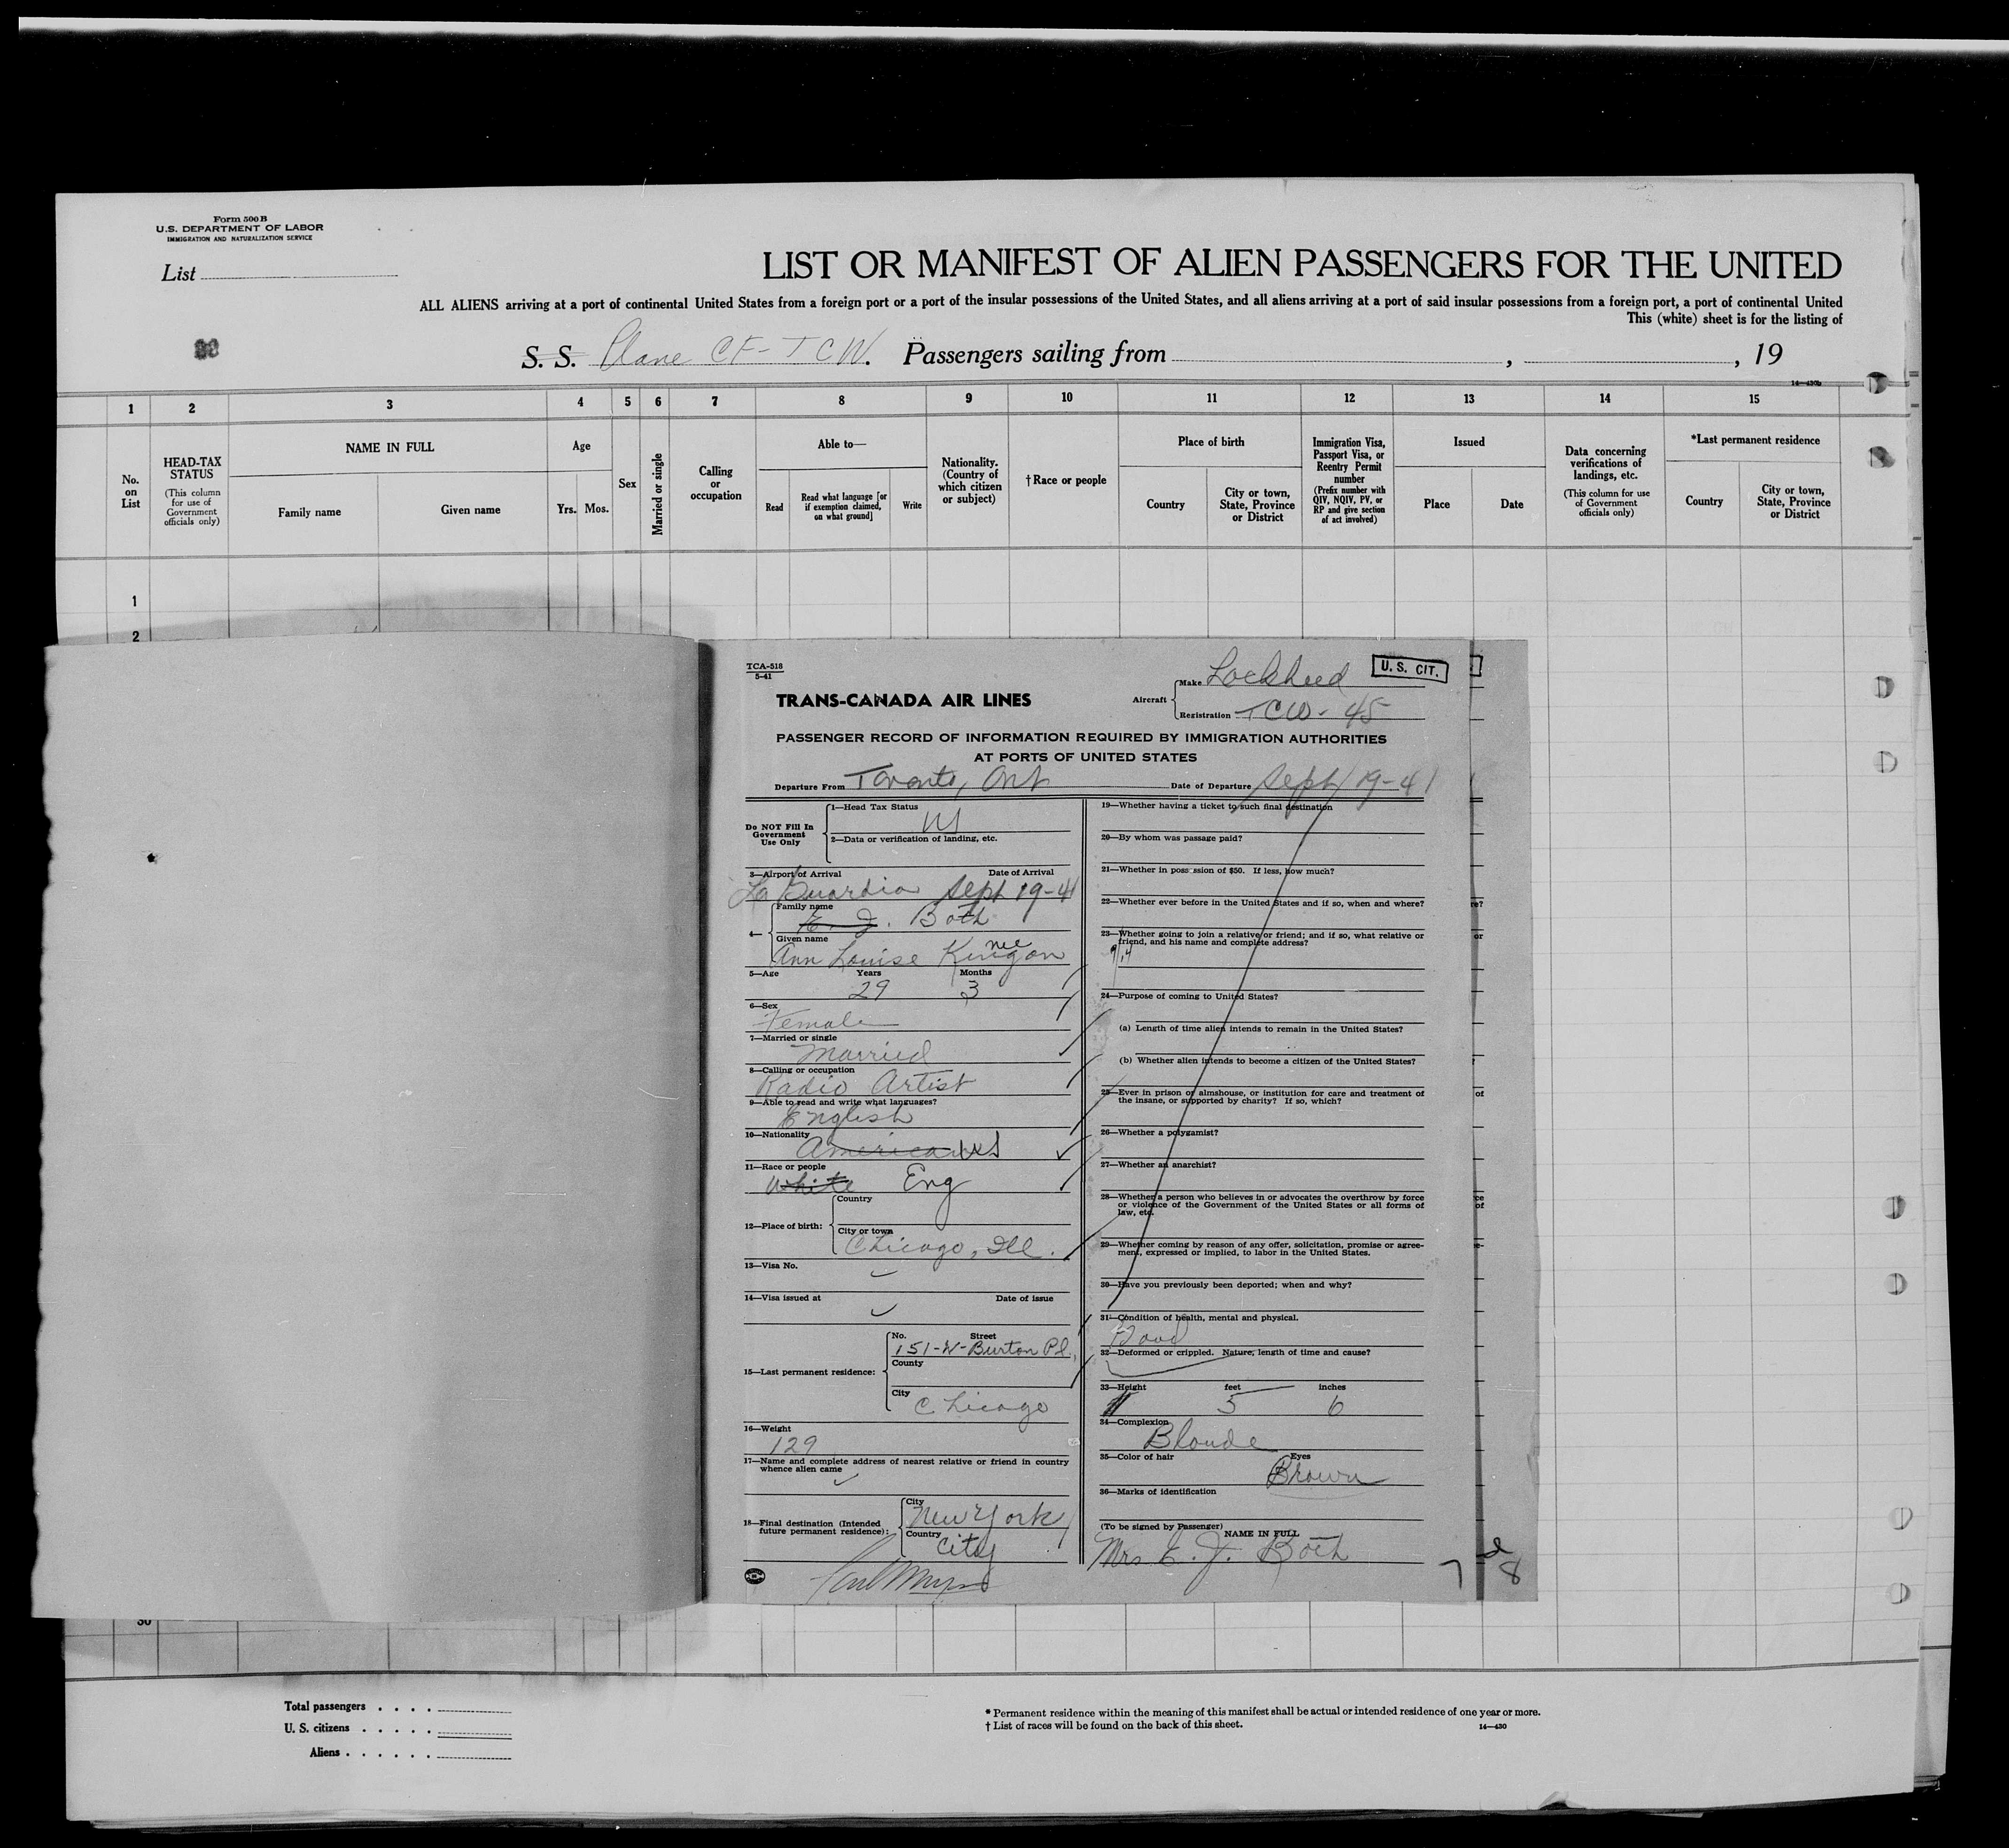 Form 500 B
U.S. DEPARTMENT OF LABOR
IMMIGRATION AND NATURALIZATION SERVICE
List
LIST OR MANIFEST OF ALIEN PASSENGERS FOR THE UNITED
ALL ALIENS arriving at a port of continental United States from a foreign port or a port of the insular possessions of the United States, and all aliens arriving at a port of said insular possessions from a foreign port, a port of continental United
This (white) sheet is for the listing of
S. S. Plane CF-TCW. Passengers sailing from , , 19
14—430b
1 2 3 4 5 6 7 8 9 10 11 12 13 14 15
No. on List
HEAD-TAX STATUS
(This column for use of Government officials only)
NAME IN FULL
Family name
Given name
Age
Yrs. Mos.
Sex
Married or single
Calling or occupation
Able to—
Read
Read what language [or if exemption claimed, on what ground]
Write
Nationality. (Country of which citizen or subject)
† Race or people
Place of birth
Country
City or town, State, Province or District
Immigration Visa, Passport Visa, or Reentry Permit number
(Prefix number with QIV, NQIV, PV, or RP and give section of act involved)
Issued
Place
Date
Data concerning verifications of landings, etc.
(This column for use of Government officials only)
*Last permanent residence
Country
City or town, State, Province or District
1
2
TCA-518
5-41
TRANS-CANADA AIR LINES
Aircraft
Make Lockheed
Registration TCW - 45
U. S. CIT.
PASSENGER RECORD OF INFORMATION REQUIRED BY IMMIGRATION AUTHORITIES
AT PORTS OF UNITED STATES
Departure From Toronto, Ont Date of Departure Sept 19-41
Do NOT Fill In Government Use Only
1—Head Tax Status
US
2—Data or verification of landing, etc.
3—Airport of Arrival Date of Arrival
La Guardia Sept 19-41
4—
Family name
E. J. Both
Given name
nee
Ann Louise Kingon
5—Age Years Months
29 3
6—Sex
Female
7—Married or single
Married
8—Calling or occupation
Radio Artist
9—Able to read and write what languages?
English
10—Nationality
American US
11—Race or people
White Eng
12—Place of birth:
Country
City or town
Chicago, Ill.
13—Visa No.
14—Visa issued at Date of issue
15—Last permanent residence:
No. Street
151-W-Burton Pl.
County
City
Chicago
16—Weight
129
17—Name and complete address of nearest relative or friend in country
whence alien came
18—Final destination (Intended
future permanent residence):
City
New York
Country
City
19—Whether having a ticket to such final destination
20—By whom was passage paid?
21—Whether in poss ssion of $50. If less, how much?
22—Whether ever before in the United States and if so, when and where?
23—Whether going to join a relative or friend; and if so, what relative or
friend, and his name and complete address?
24—Purpose of coming to United States?
(a) Length of time alien intends to remain in the United States?
(b) Whether alien intends to become a citizen of the United States?
25—Ever in prison or almshouse, or institution for care and treatment of
the insane, or supported by charity? If so, which?
26—Whether a polygamist?
27—Whether an anarchist?
28—Whether a person who believes in or advocates the overthrow by force
or violence of the Government of the United States or all forms of
law, etc.
29—Whether coming by reason of any offer, solicitation, promise or agree-
ment, expressed or implied, to labor in the United States.
30—Have you previously been deported; when and why?
31—Condition of health, mental and physical.
Good
32—Deformed or crippled. Nature, length of time and cause?
33—Height feet inches
5 6
34—Complexion
Blonde
35—Color of hair Eyes
Brown
36—Marks of identification
(To be signed by Passenger)
NAME IN FULL
Mrs E. J. Both
7
8
30
Total passengers . . . .
U. S. citizens . . . . .
Aliens . . . . . .
* Permanent residence within the meaning of this manifest shall be actual or intended residence of one year or more.
† List of races will be found on the back of this sheet.
14—430